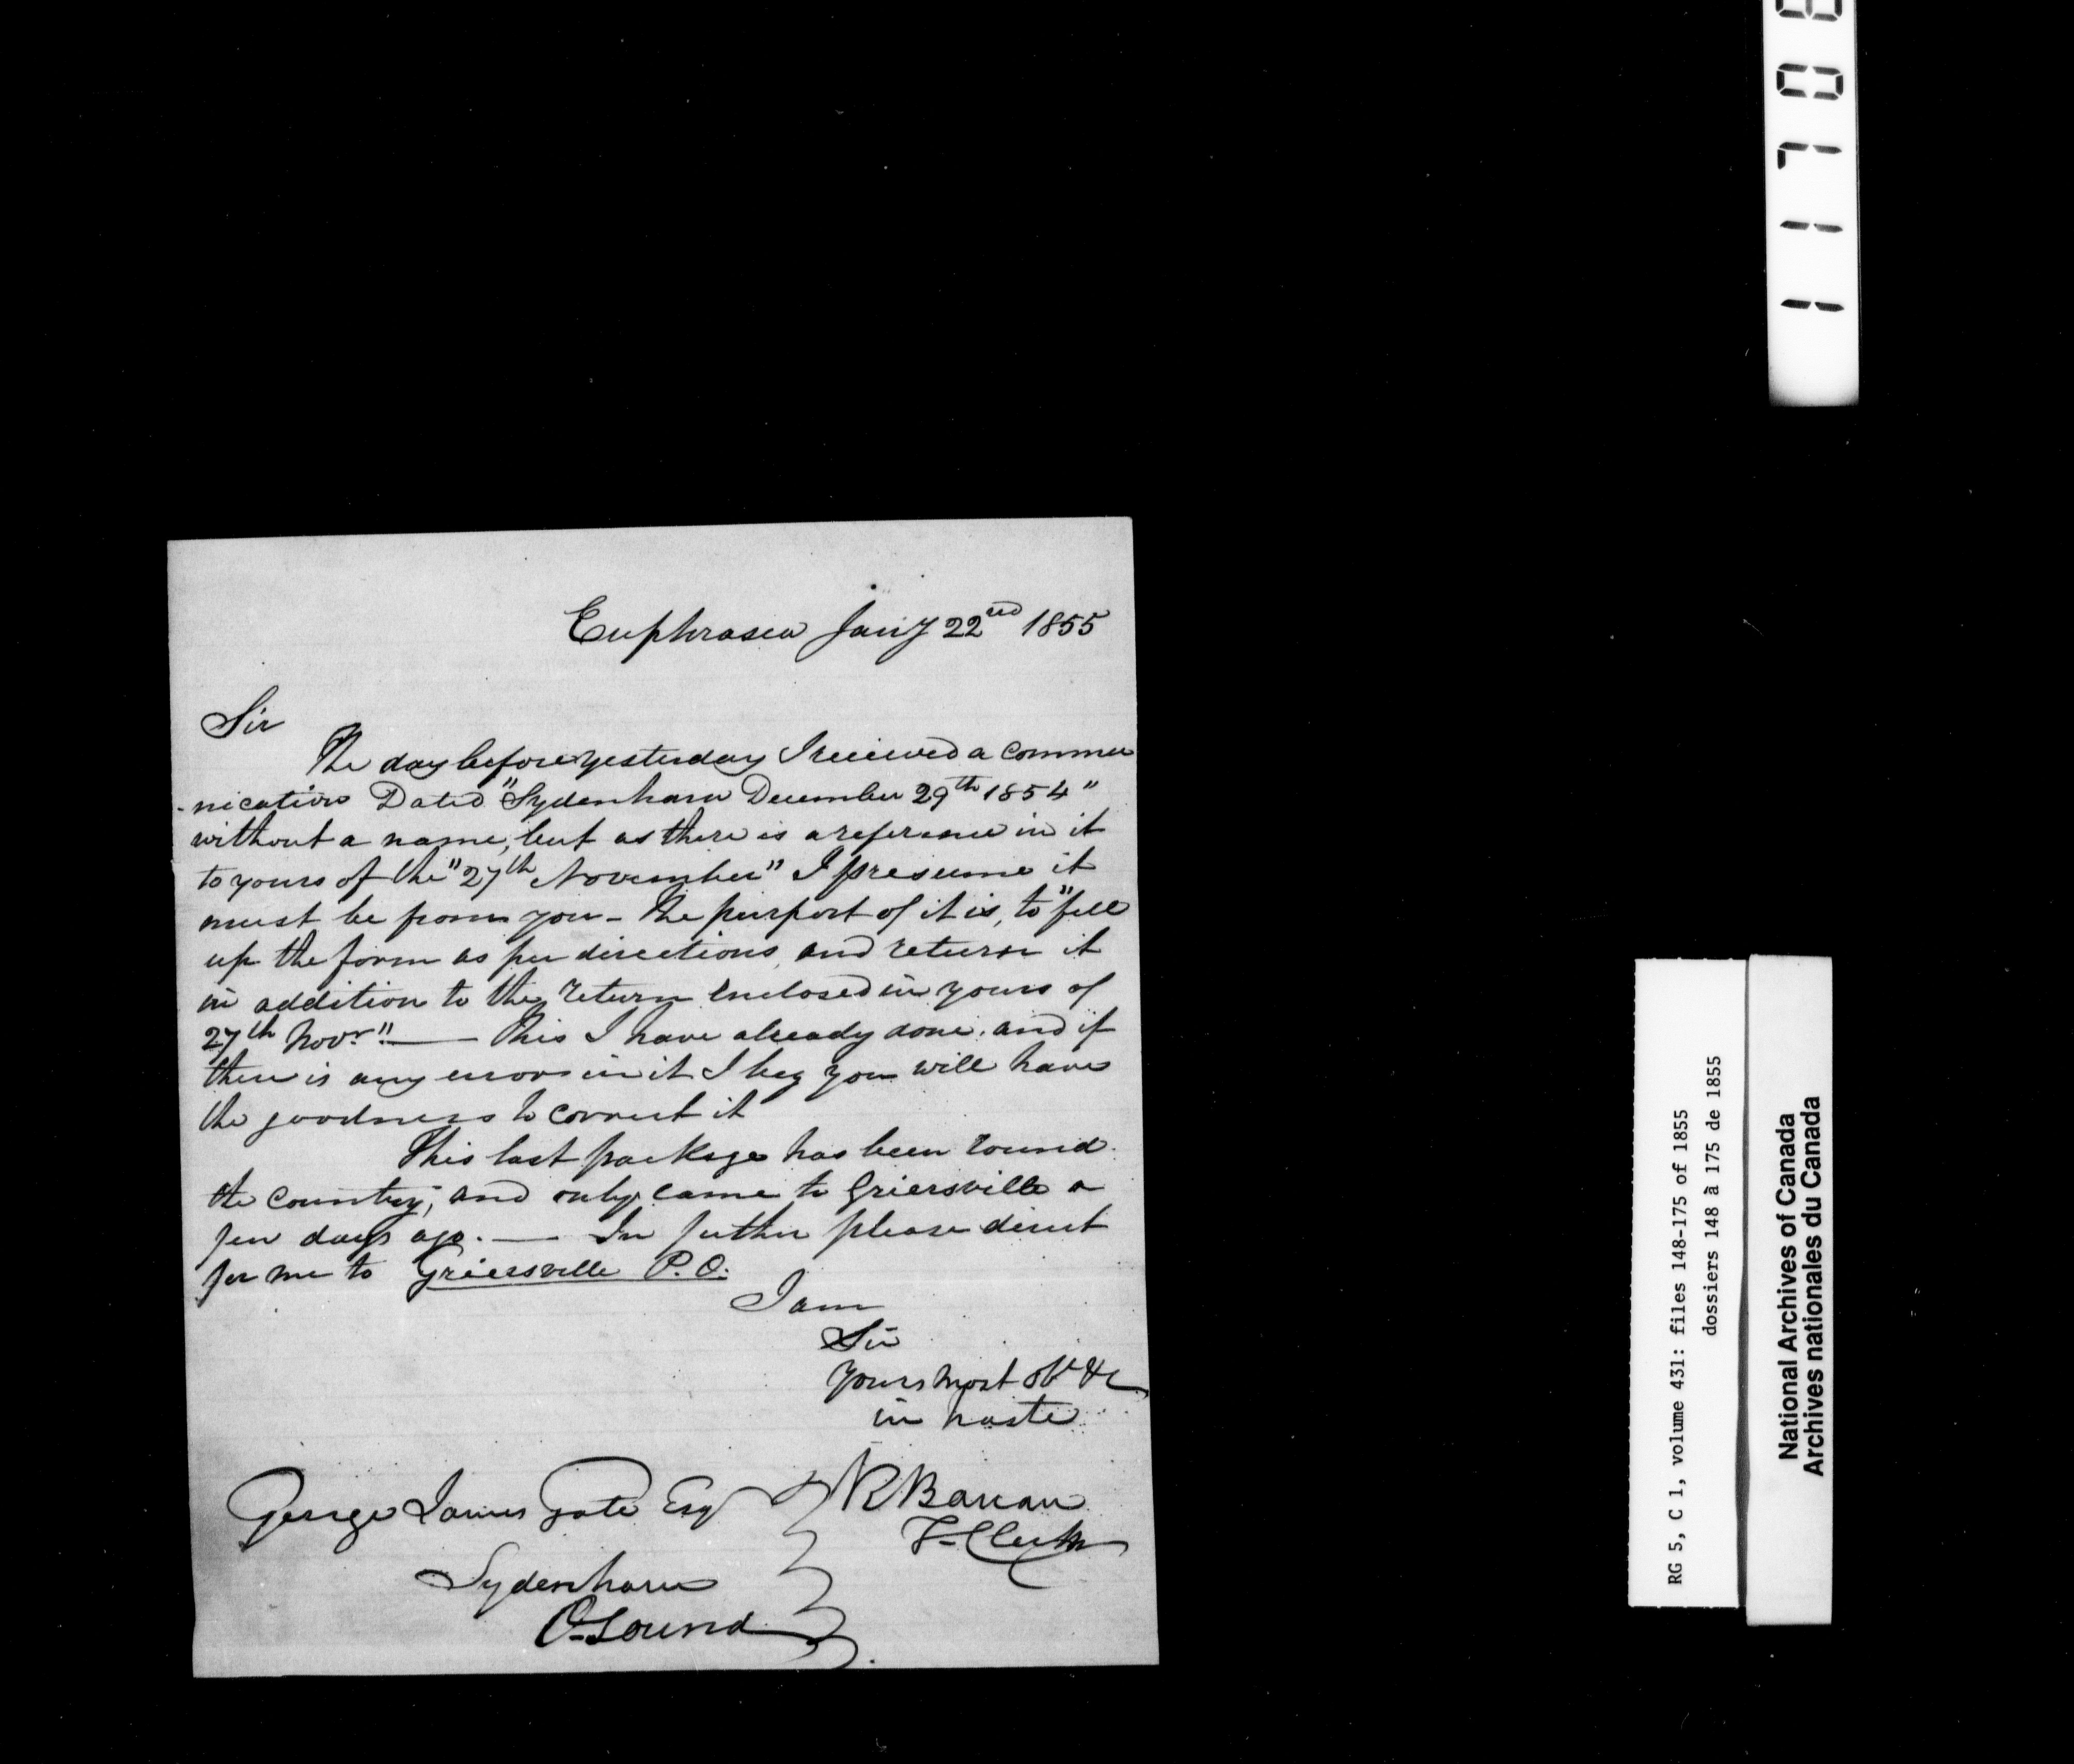 Euphrasia Jany 22nd 1855
Sir
The day before yesterday I received a commu
-nication Dated "Sydenham December 29th 1854"
without a name, but as there is a reference in it
to yours of the "27th November" I presume it
must be from you - The purport of it is, to "fill
up the form as per directions, and return it
in addition to the return enclosed in yours of
27th Novr" — This I have already done, and if
there is any errors in it I beg you will have
the goodness to correct it
This last package has been round
the country; and only came to Griersville a
few days ago. — In futher please direct
for me to Griersville P.O.
I am
Sir
Yours most obt &c
in haste
R
T-Clerk
George James Gale Esq
Sydenham
O-Sound
11708
RG 5, C 1, volume 431: files 148-175 of 1855
dossiers 148 à 175 de 1855
National Archives of Canada
Archives nationales du Canada